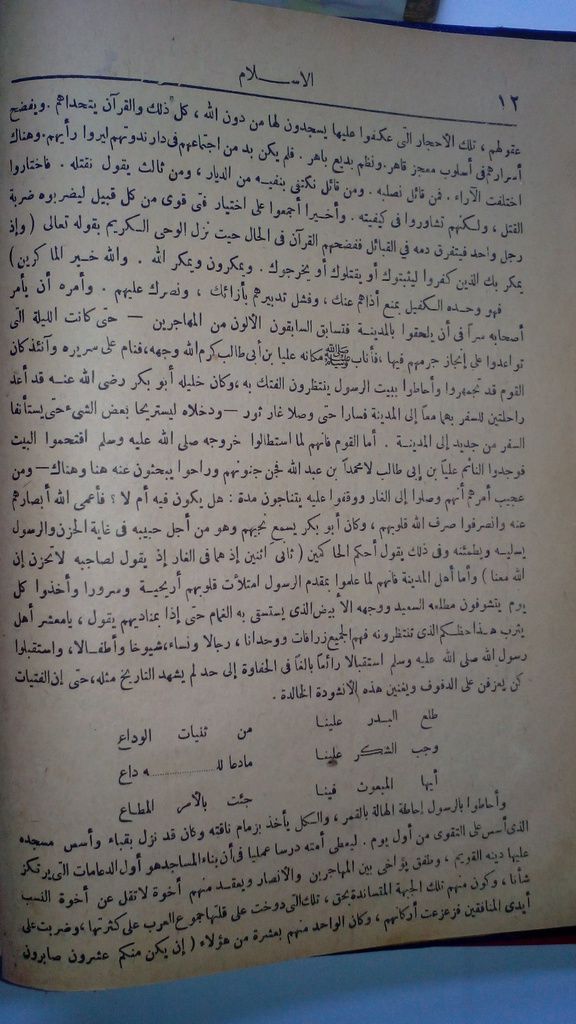 ١٢
الاســلام
عقولهم ، تلك الاحجار التى عكفوا عليها يسجدون لها من دون الله ، كل ذلك والقرآن يتحداهم . ويفضح
أسرارهم فى أسلوب معجز قاهر . ونظم بديع باهر . فلم يكن بد من اجتماعهم فى دار ندوتهم ليروا رأيهم . وهناك
اختلفت الآراء . فمن قائل نصلبه . ومن قائل نكتفى بنفيه من الديار ، ومن ثالث يقول نقتله . فاختاروا
القتل ، ولكنهم تشاوروا فى كيفيته . وأخيرا أجمعوا على اختيار فتى قوى من كل قبيل ليضربوه ضربة
رجل واحد فيتفرق دمه فى القبائل ففضحهم القرآن فى الحال حيث نزل الوحى الكريم بقوله تعالى ( وإذ
يمكر بك الذين كفروا ليثبتوك أو يقتلوك أو يخرجوك . ويمكرون ويمكر الله . والله خير الماكرين )
فهو وحده الكفيل بمنع أذاهم عنك ، وفشل تدبيرهم بأزائك ، ونصرك عليهم . وأمره أن يأمر
أصحابه سراً فى أن يلحقوا بالمدينة فتسابق السابقون الألون من المهاجرين — حتى كانت الليلة التى
تواعدوا على إنجاز جرمهم فيها ، فأناب ﷺ مكانه عليا بن أبى طالب كرم الله وجهه ، فنام على سريره وآنئذ كان
القوم قد تجمهروا وأحاطوا ببيت الرسول ينتظرون الفتك به ، وكان خليله أبو بكر رضى الله عنه قد أعد
راحلتين للسفر بهما معاً إلى المدينة فسارا حتى وصلا غار ثور — ودخلاه ليستريحا بعض الشىء حتى يستأنفا
السفر من جديد إلى المدينة . أما القوم فانهم لما استطالوا خروجه صلى الله عليه وسلم اقتحموا البيت
فوجدوا النائم علياً بن إبى طالب لا محمداً بن عبد الله فجن جنونهم وراحوا يبحثون عنه هنا وهناك — ومن
عجيب أمرهم أنهم وصلوا إلى الغار ووقفوا عليه يتناجون مدة : هل يكون فيه أم لا ؟ فأعمى الله أبصارهم
عنه وانصرفوا صرف الله قلوبهم ، وكان أبو بكر يسمع نجيهم وهو من أجل حبيبه فى غاية الحزن والرسول
يسليه ويطمئنه وفى ذلك يقول أحكم الحاكمين ( ثانى اثنين إذ هما فى الغار إذ يقول لصاحبه لاتحزن إن
الله معنا ) وأما أهل المدينة فانهم لما علموا بمقدم الرسول امتلأت قلوبهم أريحية وسرورا وأخذوا كل
يوم يتشوفون مطلعه السعيد ووجهه الأبيض الذى يستسقى به الغمام حتى إذا بمناديهم يقول ، يامعشر أهل
يثرب هذا حظكم الذى تنتظرونه فهم الجميع زرافات ووحدانا ، رجالا ونساء ، شيوخا وأطفالا ، واستقبلوا
رسول الله صلى الله عليه وسلم استقبالا رائعاً بالغاً فى الحفاوة إلى حد لم يشهد التاريخ مثله ، حتى إن الفتيات
كن يعزفن على الدفوف ويغنين هذه الأنشودة الخالدة .
طلع البدر علينا من ثنيات الوداع
وجب الشكر علينا مادعا لله داع
أيها المبعوث فينا جئت بالأمر المطاع
وأحاطوا بالرسول إحاطة الهالة بالقمر ، والكل يأخذ بزمام ناقته وكان قد نزل بقباء وأسس مسجده
الذى أسس على التقوى من أول يوم . ليعطى أمته درسا عمليا فى أن بناء المساجد هو أول الدعامات التى يرتكز
عليها دينه القويم ، وطفق يؤاخى بين المهاجرين والأنصار ويعقد منهم أخوة لاتقل عن أخوة النسب
شأنا ، وكون منهم تلك الجبهة المتساندة بحق ، تلك التى دوخت على قلتها جموع العرب على كثرتها ، وضربت على
أيدى المنافقين فزعزعت أركانهم ، وكان الواحد منهم بعشرة من هؤلاء ( إن يكن منكم عشرون صابرون